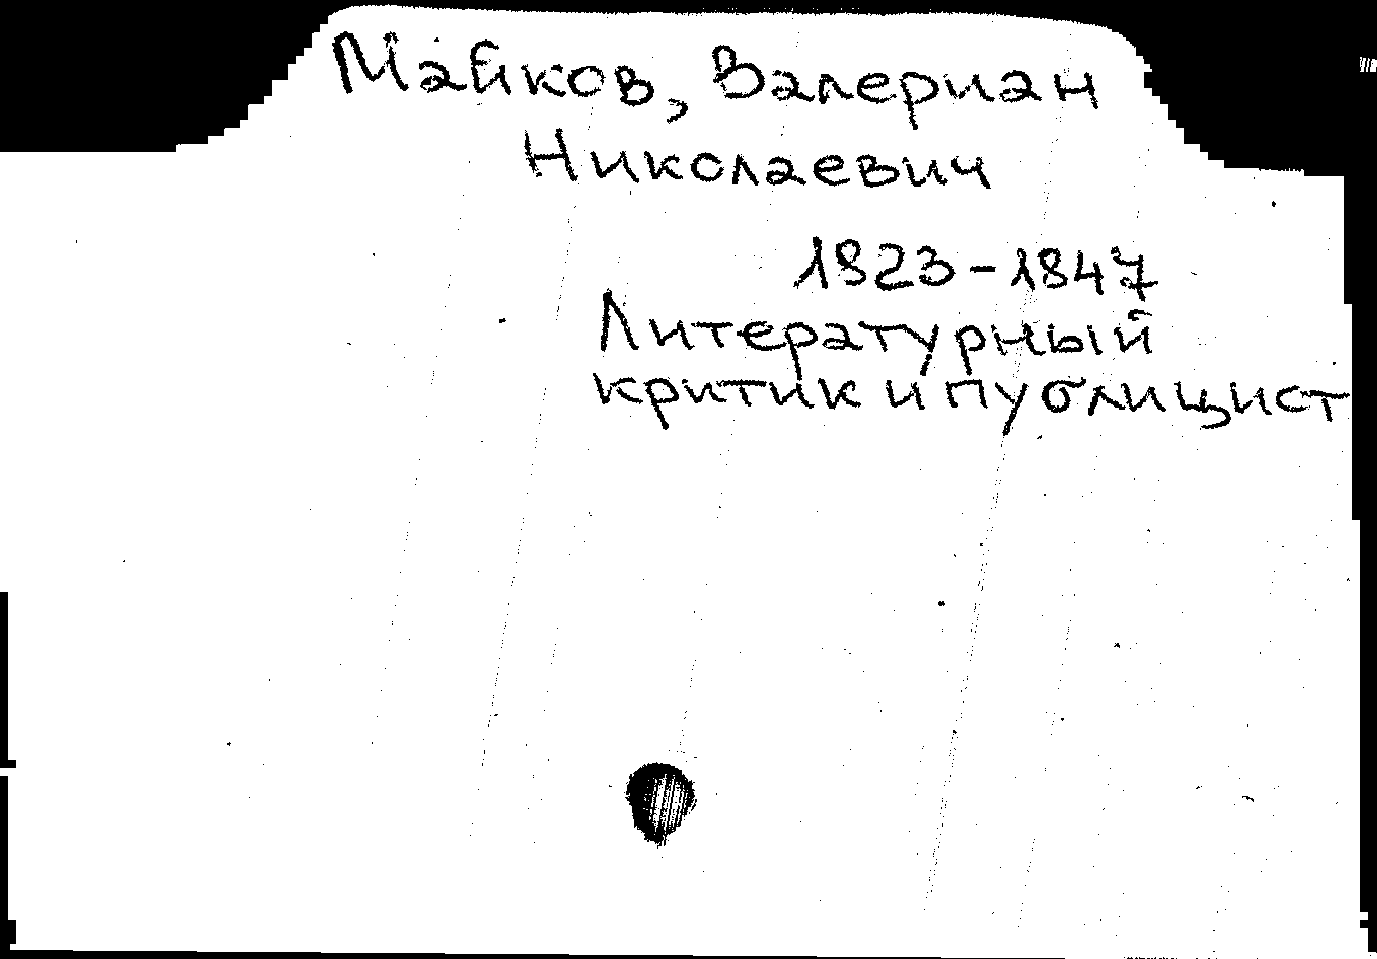 Майков, Валериан
Николаевич
1823-1847
Литературный
критик и публицист